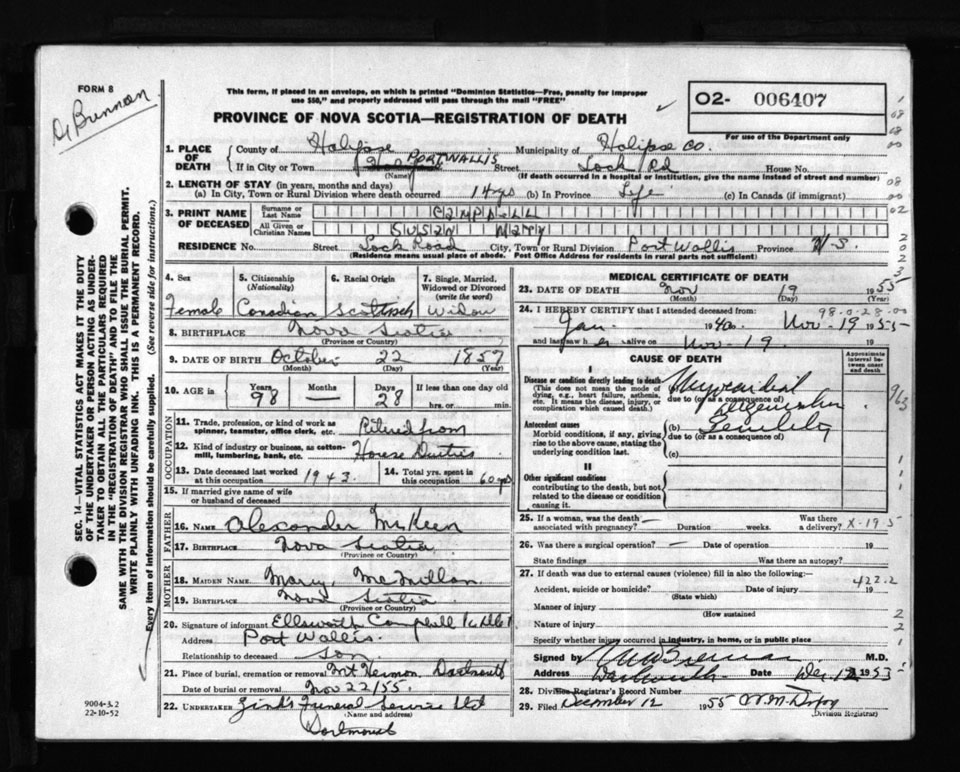 FORM 8
This form, if placed in an envelope, on which is printed "Dominion Statistics—Free, penalty for improper
use $50," and properly addressed will pass through the mail "FREE"
O2- 006407
PROVINCE OF NOVA SCOTIA—REGISTRATION OF DEATH
For use of the Department only
1. PLACE OF DEATH
County of Municipality of Co.
If in City or Town PORT WALLIS Street Lock Rd House No.
(Name) (If death occurred in a hospital or institution, give the name instead of street and number)
2. LENGTH OF STAY (in years, months and days)
(a) In City, Town or Rural Division where death occurred 14 yrs (b) In Province Life (c) In Canada (if immigrant)
3. PRINT NAME OF DECEASED
Surname or Last Name CAMPBELL
All Given or Christian Names SUSAN MARY
RESIDENCE No. Street Lock Road City, Town or Rural Division Port Wallis Province N-S.
(Residence means usual place of abode. Post Office Address for residents in rural parts not sufficient)
4. Sex Female
5. Citizenship (Nationality) Canadian
6. Racial Origin Scottish
7. Single, Married, Widowed or Divorced (write the word) Widow
8. BIRTHPLACE Nova Scotia
(Province or Country)
9. DATE OF BIRTH October 22 1857
(Month) (Day) (Year)
10. AGE in Years 98 Months Days 28 If less than one day old
hrs. or min.
OCCUPATION
11. Trade, profession, or kind of work as
spinner, teamster, office clerk, etc. Retired from
12. Kind of industry or business, as cotton-
mill, lumbering, bank, etc. House Duties
13. Date deceased last worked
at this occupation 1943.
14. Total yrs. spent in
this occupation 60 yrs
15. If married give name of wife
or husband of deceased
FATHER
16. NAME Alexander McKeen
17. BIRTHPLACE Nova Scotia
(Province or Country)
MOTHER
18. MAIDEN NAME Mary McMillan
19. BIRTHPLACE Nova Scotia
(Province or Country)
20. Signature of informant Ellsworth Campbell
Address Port Wallis.
Relationship to deceased Son
21. Place of burial, cremation or removal Mt Hermon Dartmouth
Date of burial or removal Nov 22/55.
22. UNDERTAKER Zink's Funeral Service Ltd
(Name and address)
Dartmouth
MEDICAL CERTIFICATE OF DEATH
23. DATE OF DEATH Nov 19 1955
(Month) (Day) (Year)
98-0-28-00
24. I HEREBY CERTIFY that I attended deceased from:
Jan. 1940 Nov-19 1955
and last saw her alive on Nov-19.
CAUSE OF DEATH
Approximate interval between onset and death
I
Disease or condition directly leading to death
(This does not mean the mode of
dying, e.g., heart failure, asthenia,
etc. It means the disease, injury, or
complication which caused death.)
Myocardial
due to (or as a consequence of)
Degeneration
Antecedent causes
Morbid conditions, if any, giving
rise to the above cause, stating the
underlying condition last.
(b) Senility
due to (or as a consequence of)
(c)
II
Other significant conditions
contributing to the death, but not
related to the disease or condition
causing it.
25. If a woman, was the death
associated with pregnancy? Duration weeks. Was there
a delivery? X-19 5
26. Was there a surgical operation? — Date of operation 19
State findings Was there an autopsy?
27. If death was due to external causes (violence) fill in also the following:—
422.2
Accident, suicide or homicide? Date of injury 19
(State which)
Manner of injury
(How sustained
Nature of injury
Specify whether injury occurred in industry, in home, or in public place
Signed by M.D.
Address Dartmouth Dec 12 1953
28. Division Registrar's Record Number
29. Filed December 12 1955
(Division Registrar)
SEC. 14—VITAL STATISTICS ACT MAKES IT THE DUTY
OF THE UNDERTAKER OR PERSON ACTING AS UNDER-
TAKER TO OBTAIN ALL THE PARTICULARS REQUIRED
IN THE "REGISTRATION OF DEATH" AND TO FILE THE
SAME WITH THE DIVISION REGISTRAR WHO SHALL ISSUE THE BURIAL PERMIT.
WRITE PLAINLY WITH UNFADING INK. THIS IS A PERMANENT RECORD.
Every item of information should be carefully supplied. (See reverse side for instructions.)
9004-3.2
22-10-52